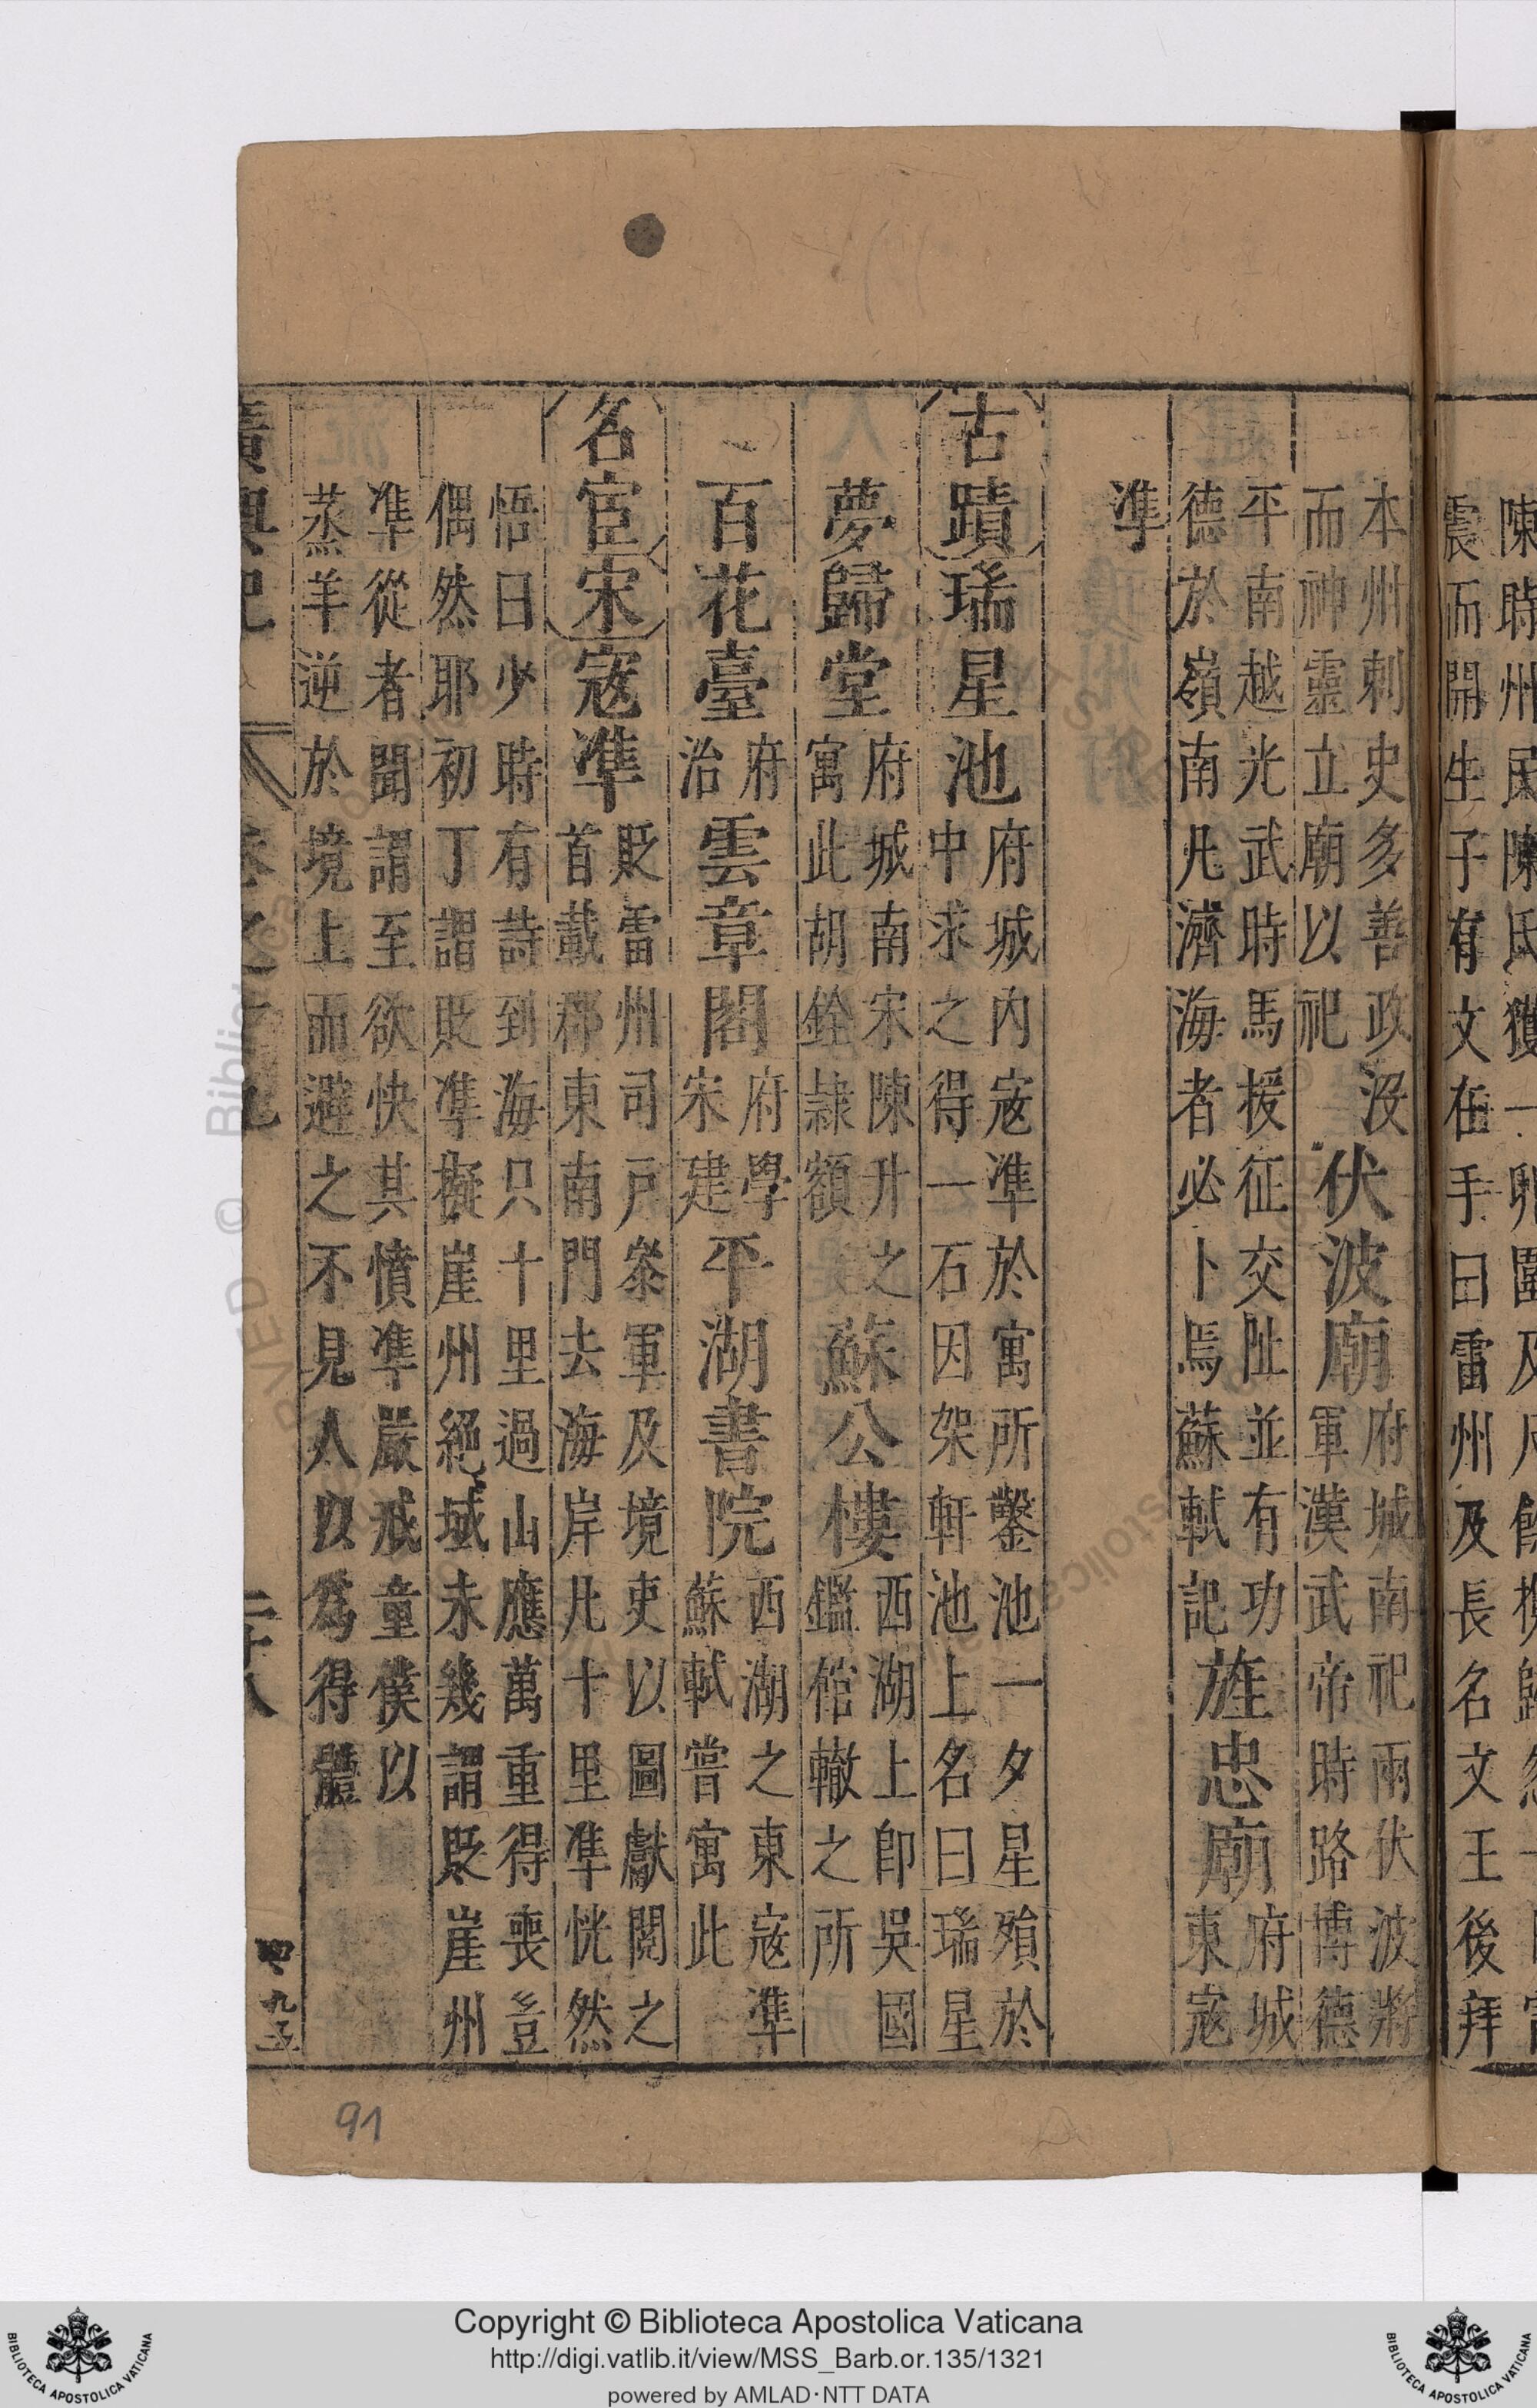 陳時州民陳氏獲一卵圍及尺
震而開生子有文在手曰雷州及長名文王後拜
本州刺史多善政沒
而神靈立廟以祀
伏波廟
府城南祀兩伏波將
軍漢武帝時路博德
平南越光武時馬援征交趾並有功
德於嶺南凡濟海者必卜焉蘇軾記
旌忠廟
府城
東寇
準
古蹟
瑞星池
府城內寇準於寓所鑿池一夕星殞於
中求之得一石因架軒池上名曰瑞星
夢歸堂
府城南宋陳升之
寓此胡銓隸額
蘇公樓
西湖上卽吳國
鑑館轍之所
百花臺
府
治
雲章閣
府學
宋建
平湖書院
西湖之東寇準
蘇軾嘗寓此
名宦
宋
寇準
貶雷州司戶叅軍及境吏以圖獻閱之
首載郡東南門去海岸凡十里準恍然
悟曰少時有詩到海只十里過山應萬重得喪豈
偶然耶初丁謂貶準擬崖州絕域未幾謂貶崖州
準從者聞謂至欲快其憤準嚴戒童僕以
蒸羊逆於境上而避之不見人以爲得體
廣輿記
卷之十九
二十八
四九五
91
Copyright © Biblioteca Apostolica Vaticana
http://digi.vatlib.it/view/MSS_Barb.or.135/1321
powered by AMLAD·NTT DATA
BIBLIOTECA APOSTOLICA VATICANA
BIBLIOTECA APOSTOLICA VATICANA